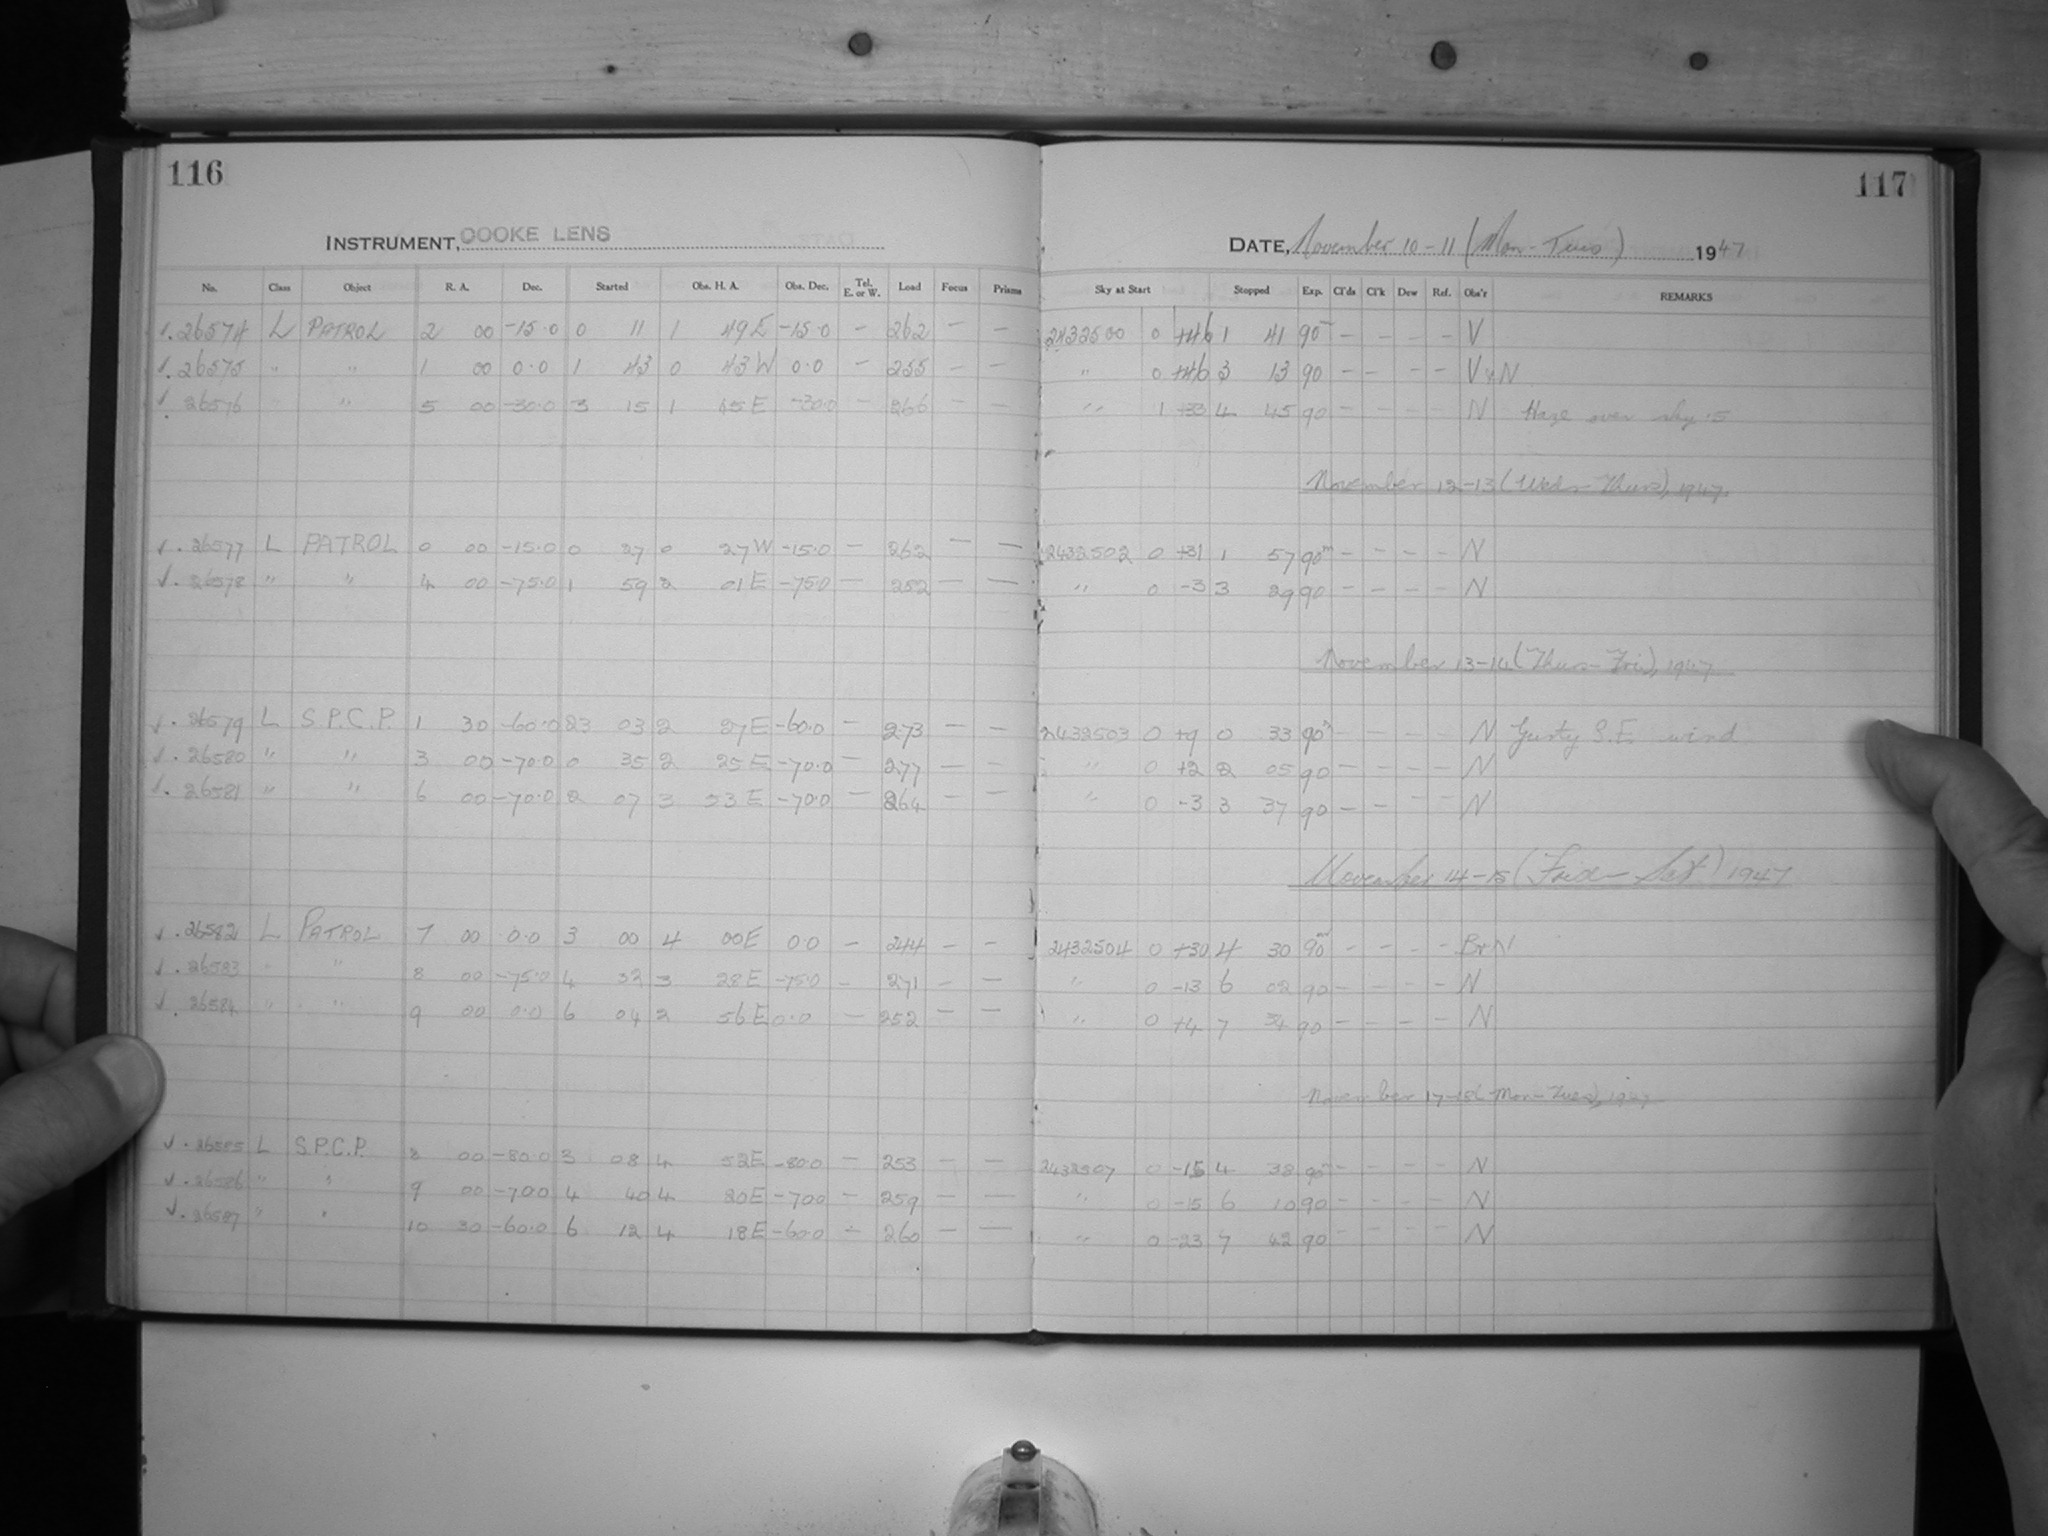 116
117
INSTRUMENT, COOKE LENS
DATE, November 10-11 (Mon-Tues) 1947
No. Class Object R. A. Dec. Started Obs. H. A. Obs. Dec. Tel. E. or W. Load Focus Prisms Sky at Start Stopped Exp. Cl'ds Cl'k Dew Ref. Obs'r REMARKS
√. 26574 L PATROL 2 00 -15.0 0 11 1 49 E -15.0 - 262 - - 2432500 0 +46 1 41 90m - - - - V
√. 26575 " " 1 00 0.0 1 43 0 43 W 0.0 - 255 - - " 0 +46 3 13 90 - - - - V N
√. 26576 " " 5 00 -30.0 3 15 1 45 E -30.0 - 266 - - " 1 +33 4 45 90 - - - - N Haze over sky
November 12-13 (Wed-Thurs), 1947.
√. 26577 L PATROL 0 00 -15.0 0 27 0 27 W -15.0 - 262 - - 2432502 0 +31 1 57 90m - - - - N
√. 26578 " " 4 00 -75.0 1 59 2 01 E -75.0 - 252 - - " 0 -3 3 29 90 - - - - N
November 13-14 (Thurs-Fri), 1947
√. 26579 L S.P.C.P. 1 30 -60.0 23 03 2 27 E -60.0 - 273 - - 2432503 0 +9 0 33 90m - - - - N Gusty S.E. wind
√. 26580 " " 3 00 -70.0 0 35 2 25 E -70.0 - 277 - - " 0 +2 2 05 90 - - - - N
√. 26581 " " 6 00 -70.0 2 07 3 53 E -70.0 - 264 - - " 0 -3 3 37 90 - - - - N
November 14-15 (Frid-Sat) 1947
√. 26582 L PATROL 7 00 0.0 3 00 4 00 E 0.0 - 244 - - 2432504 0 +30 4 30 90m - - - - Br N
√. 26583 " " 8 00 -75.0 4 32 3 28 E -75.0 - 271 - - " 0 -13 6 02 90 - - - - N
√. 26584 " " 9 00 0.0 6 04 2 56 E 0.0 - 252 - - " 0 +4 7 34 90 - - - - N
November 17-18 (Mon-Tues), 1947
√. 26585 L S.P.C.P. 8 00 -80.0 3 08 4 52 E -80.0 - 253 - - 2432507 0 -15 4 38 90m - - - - N
√. 26586 " " 9 00 -70.0 4 40 4 20 E -70.0 - 259 - - " 0 -15 6 10 90 - - - - N
√. 26587 " " 10 30 -60.0 6 12 4 18 E -60.0 - 260 - - " 0 -23 7 42 90 - - - - N